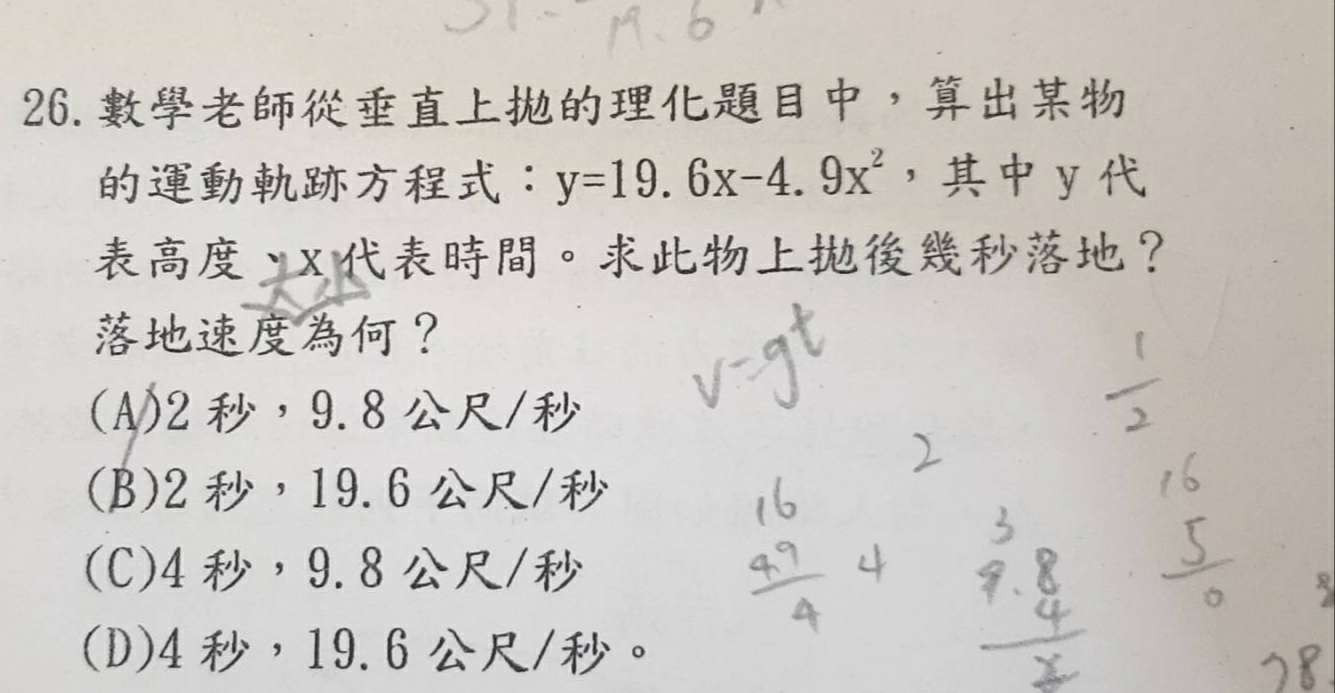 19.6
26.數學老師從垂直上拋的理化題目中，算出某物
的運動軌跡方程式：y=19.6x-4.9x²，其中 y 代
表高度、x 代表時間。求此物上拋後幾秒落地？
大小
落地速度為何？
v-gt
1
2
(A)2 秒，9.8 公尺/秒
(B)2 秒，19.6 公尺/秒
2
16
16
3
5
(C)4 秒，9.8 公尺/秒
4.9
4
4
9.8
4
0
(D)4 秒，19.6 公尺/秒。
78